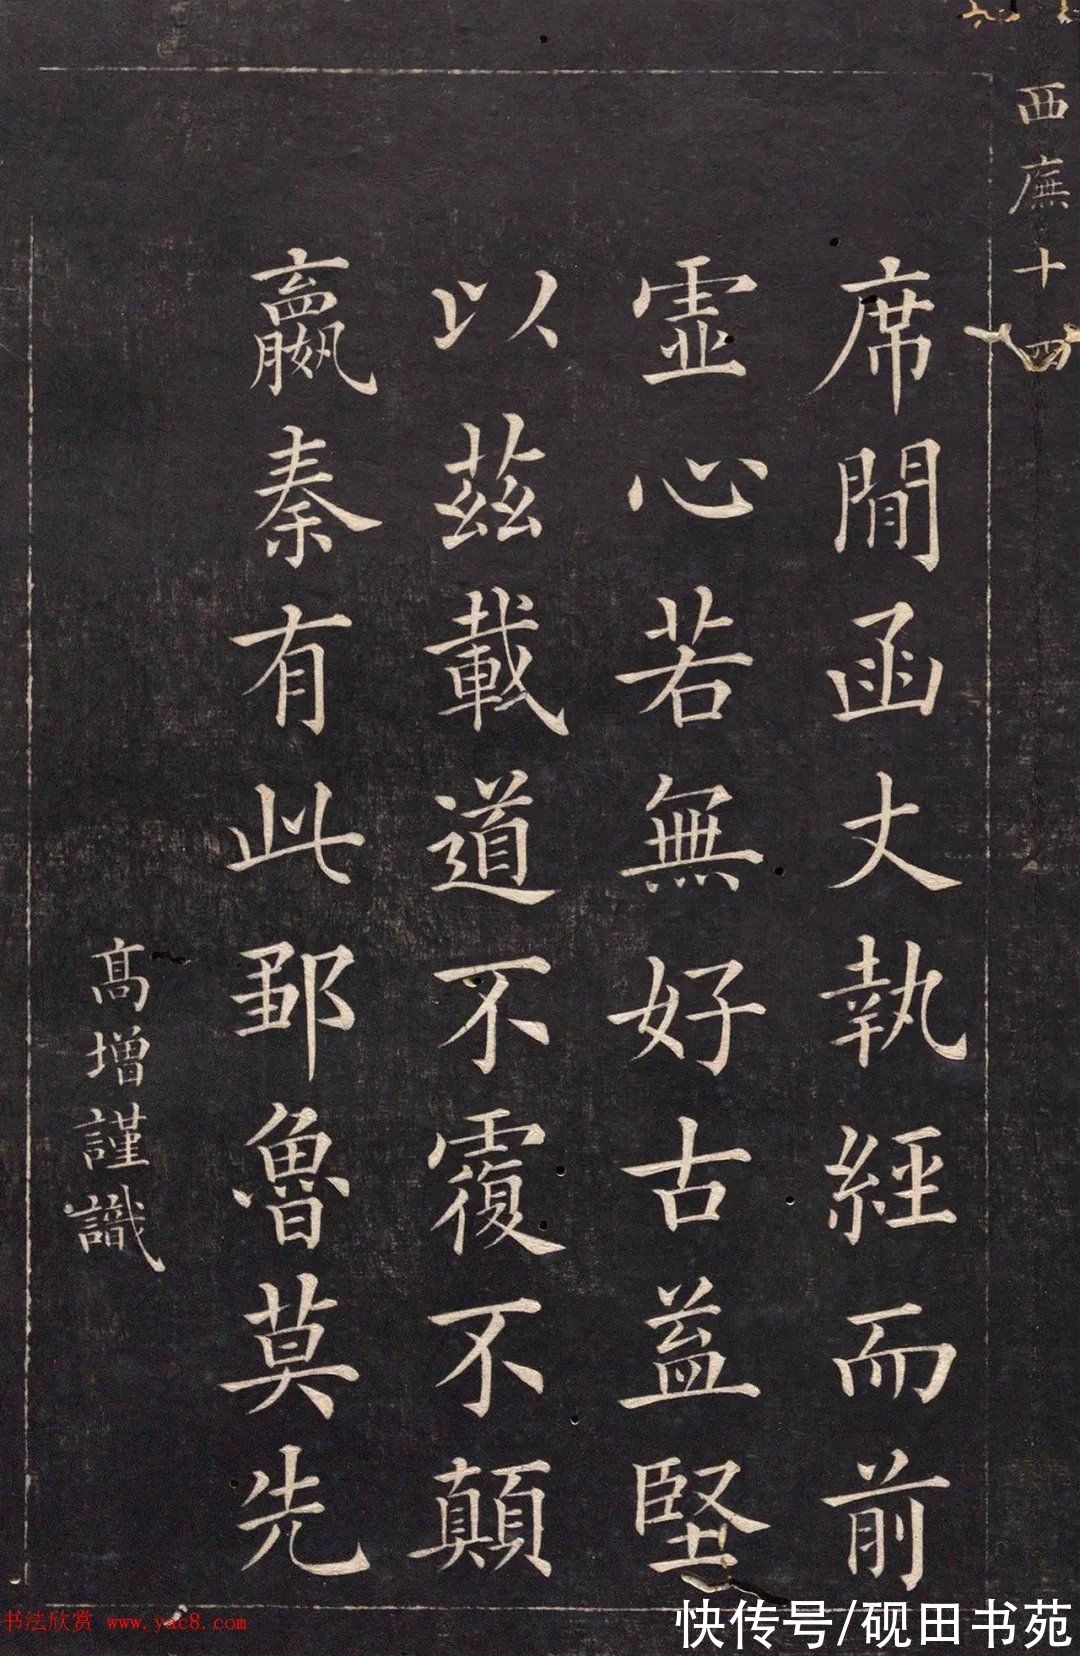 西廡十四
席間函丈執經而前
虛心若無好古益堅
以茲載道不覆不顛
嬴秦有此鄒魯莫先
高增謹識
书法欣赏 www.yac8.com
快传号/砚田书苑